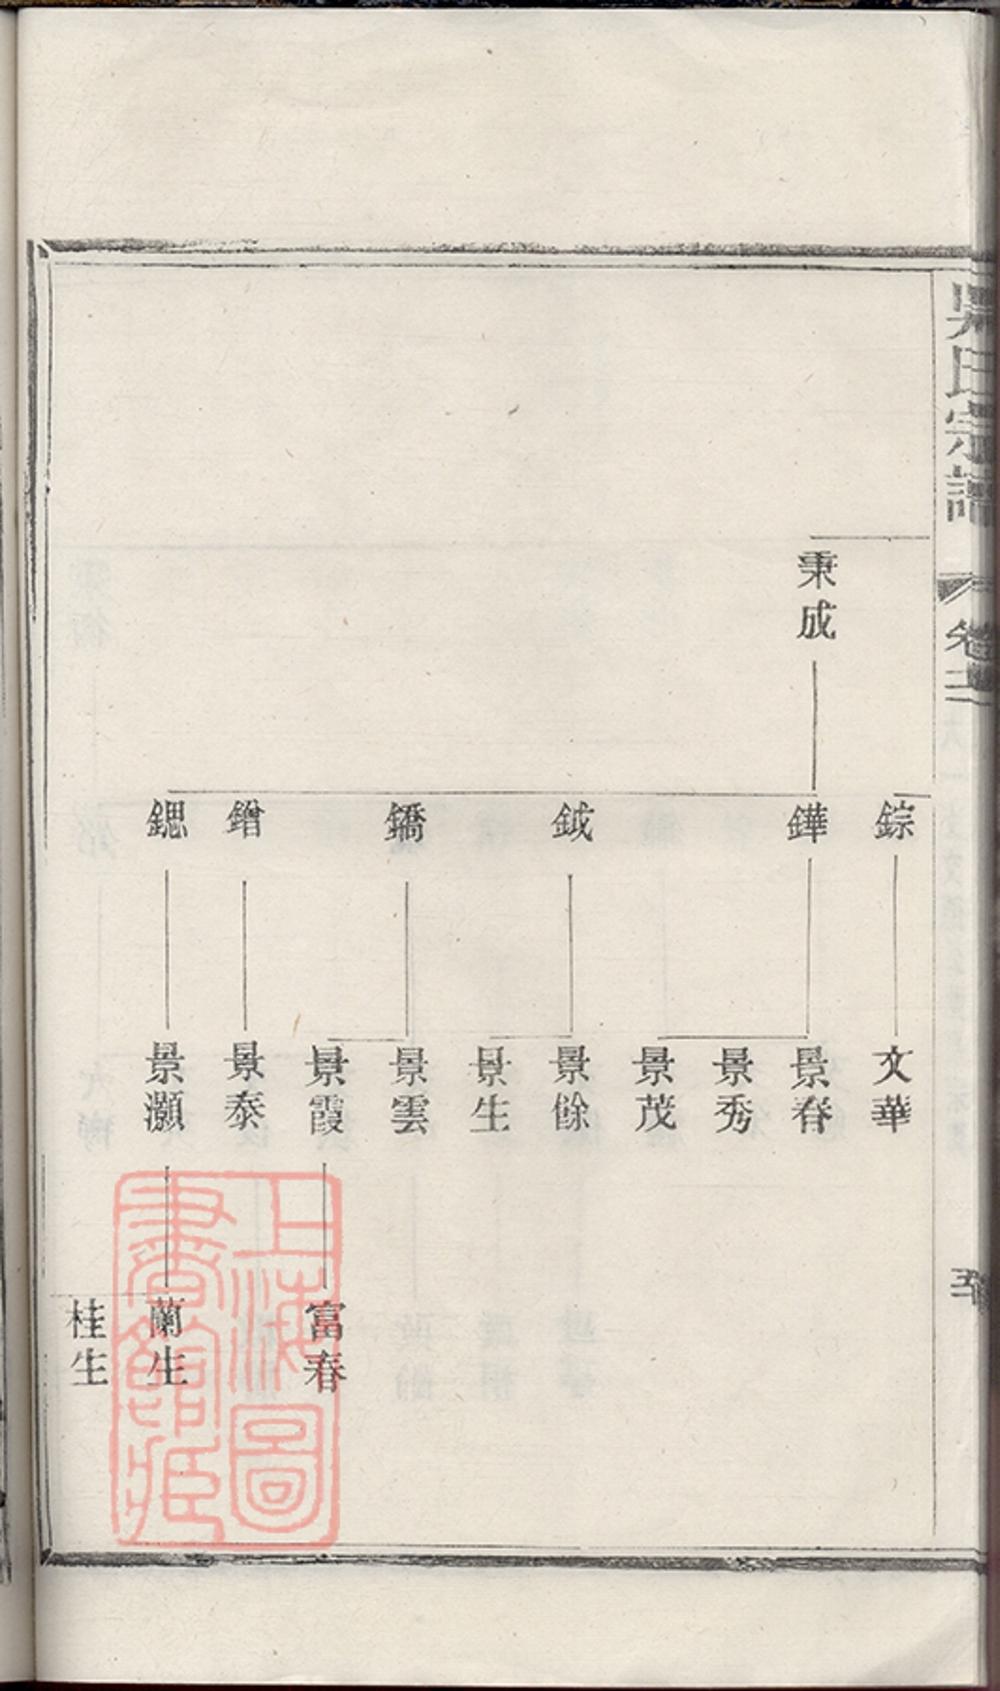 吳氏宗譜
卷二
秉成
錝
鏵
鉞
鐈
鏳
鍶
文華
景春
景秀
景茂
景餘
景生
景雲
景霞
景泰
景灝
富春
蘭生
桂生
上海圖
書館藏